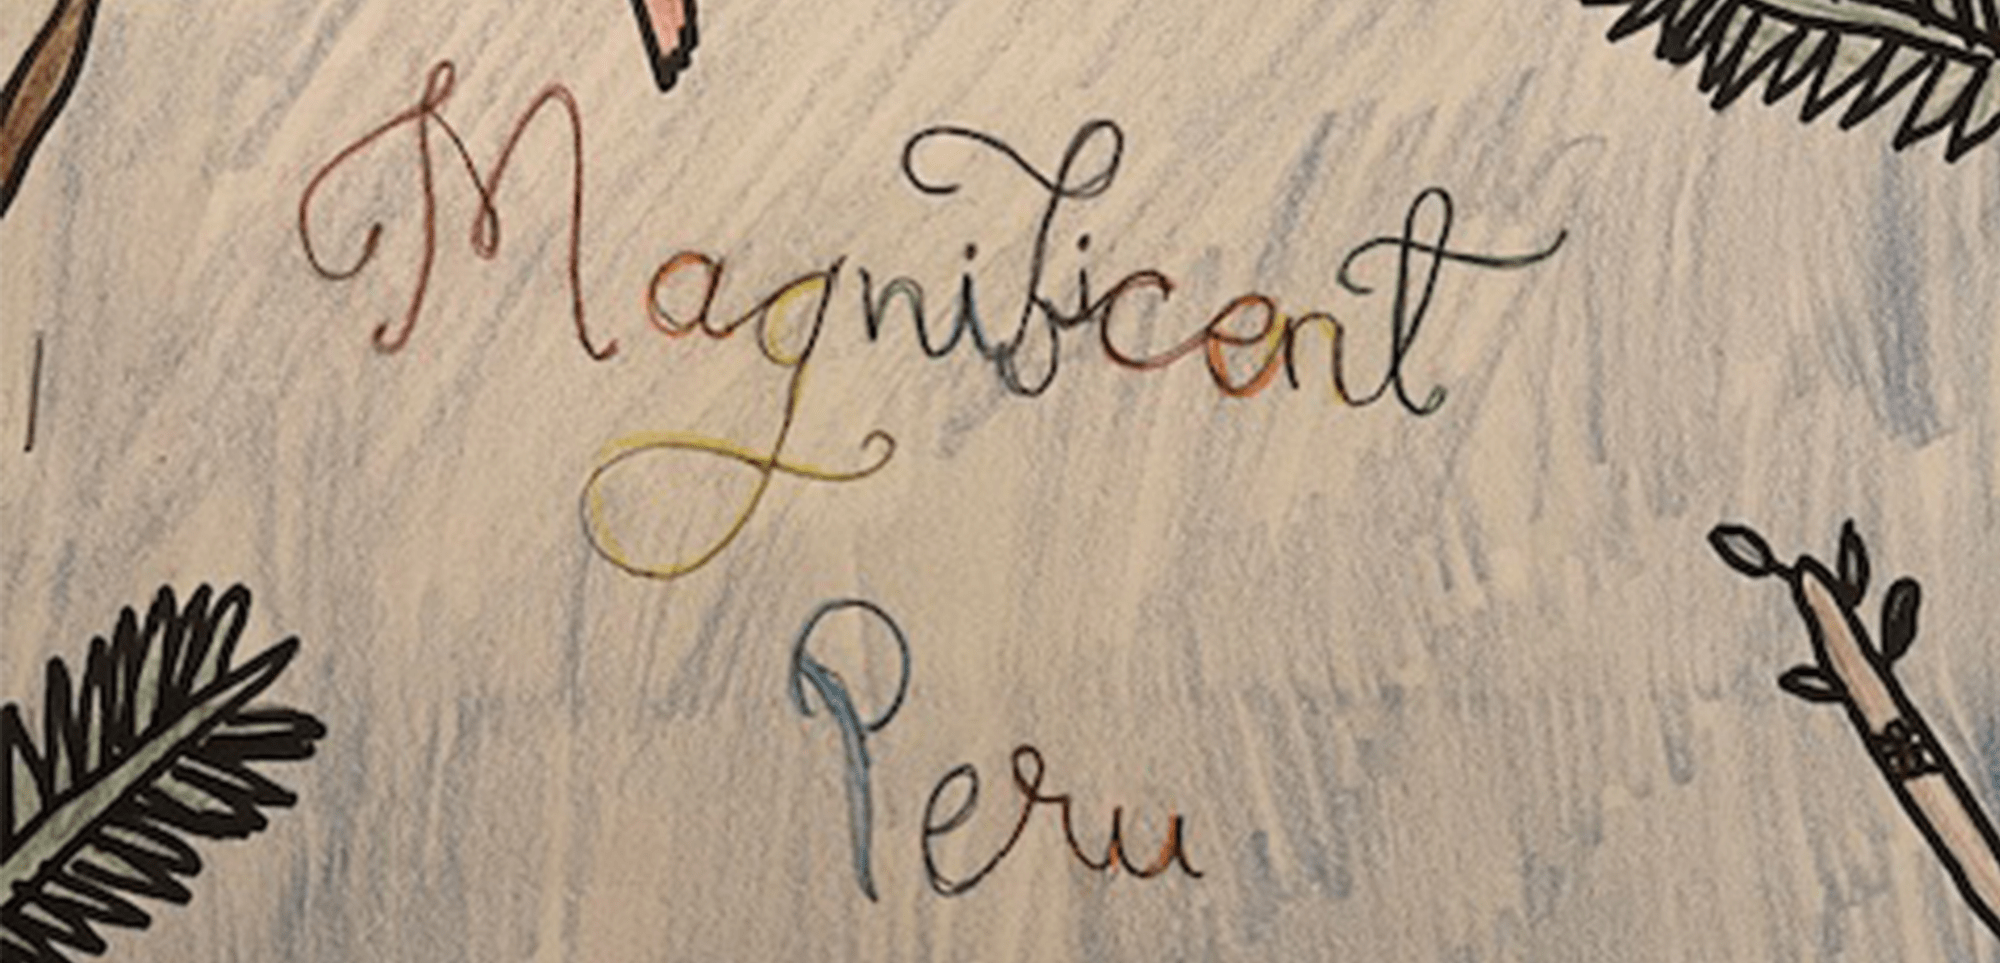 Magnificent
Peru